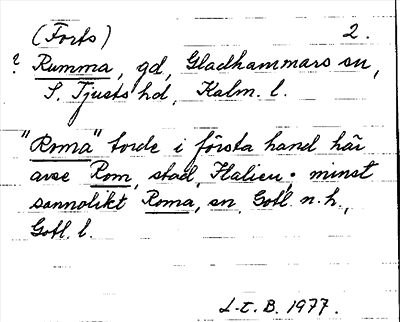 (Forts) 2.
? Rumma, gd, Gladhammars sn,
S. Tjusts hd, Kalm. l.
"Roma" torde i första hand här
avse Rom, stad, Italien; minst
sannolikt Roma, sn, Gotl. n. h.,
Gotl. l.
L-t. B. 1977.